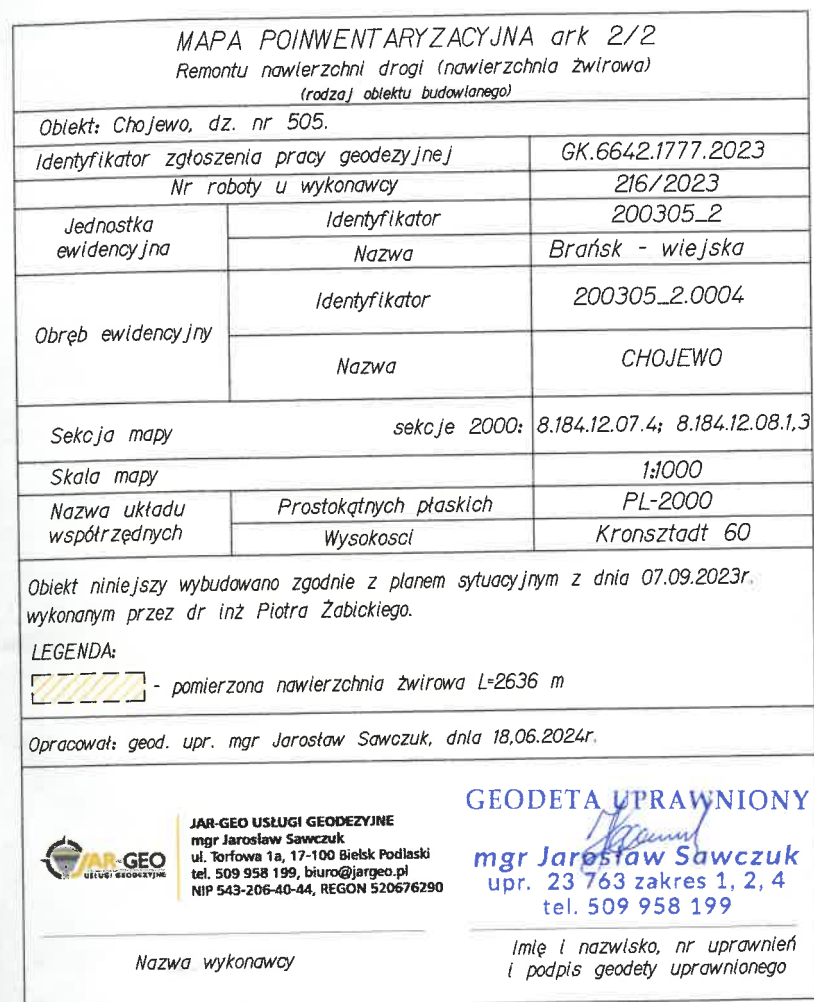 MAPA POINWENTARYZACYJNA ark 2/2
Remontu nawierzchni drogi (nawierzchnia żwirowa)
(rodzaj obiektu budowlanego)
Obiekt: Chojewo, dz. nr 505.
Identyfikator zgłoszenia pracy geodezyjnej GK.6642.1777.2023
Nr roboty u wykonawcy 216/2023
Jednostka ewidencyjna Identyfikator 200305_2
Nazwa Brańsk - wiejska
Obręb ewidencyjny Identyfikator 200305_2.0004
Nazwa CHOJEWO
Sekcja mapy sekcje 2000: 8.184.12.07.4; 8.184.12.08.1,3
Skala mapy 1:1000
Nazwa układu współrzędnych Prostokątnych płaskich PL-2000
Wysokosci Kronsztadt 60
Obiekt niniejszy wybudowano zgodnie z planem sytuacyjnym z dnia 07.09.2023r.
wykonanym przez dr inż Piotra Żabickiego.
LEGENDA:
- pomierzona nawierzchnia żwirowa L=2636 m
Opracował: geod. upr. mgr Jarosław Sawczuk, dnia 18.06.2024r.
JAR-GEO
USŁUGI GEODEZYJNE
JAR-GEO USŁUGI GEODEZYJNE
mgr Jarosław Sawczuk
ul. Torfowa 1a, 17-100 Bielsk Podlaski
tel. 509 958 199, biuro@jargeo.pl
NIP 543-206-40-44, REGON 520676290
Nazwa wykonawcy
GEODETA UPRAWNIONY
mgr Jarosław Sawczuk
upr. 23 763 zakres 1, 2, 4
tel. 509 958 199
Imię i nazwisko, nr uprawnień
i podpis geodety uprawnionego